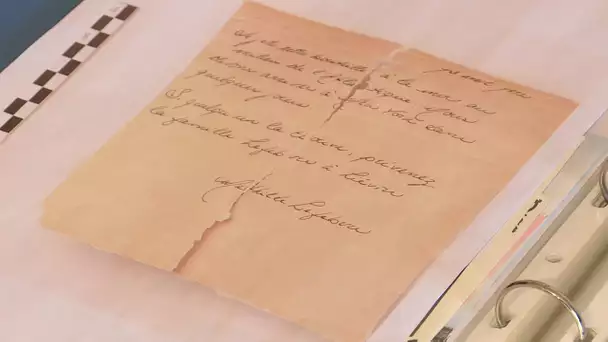 Je jette cette bouteille à la mer au
milieu de l'Atlantique. Nous
devons arriver à New York dans
quelques jours
Si quelqu'un la trouve, prévenez
la famille Lefebvre à Liévin
Mathilde Lefebvre